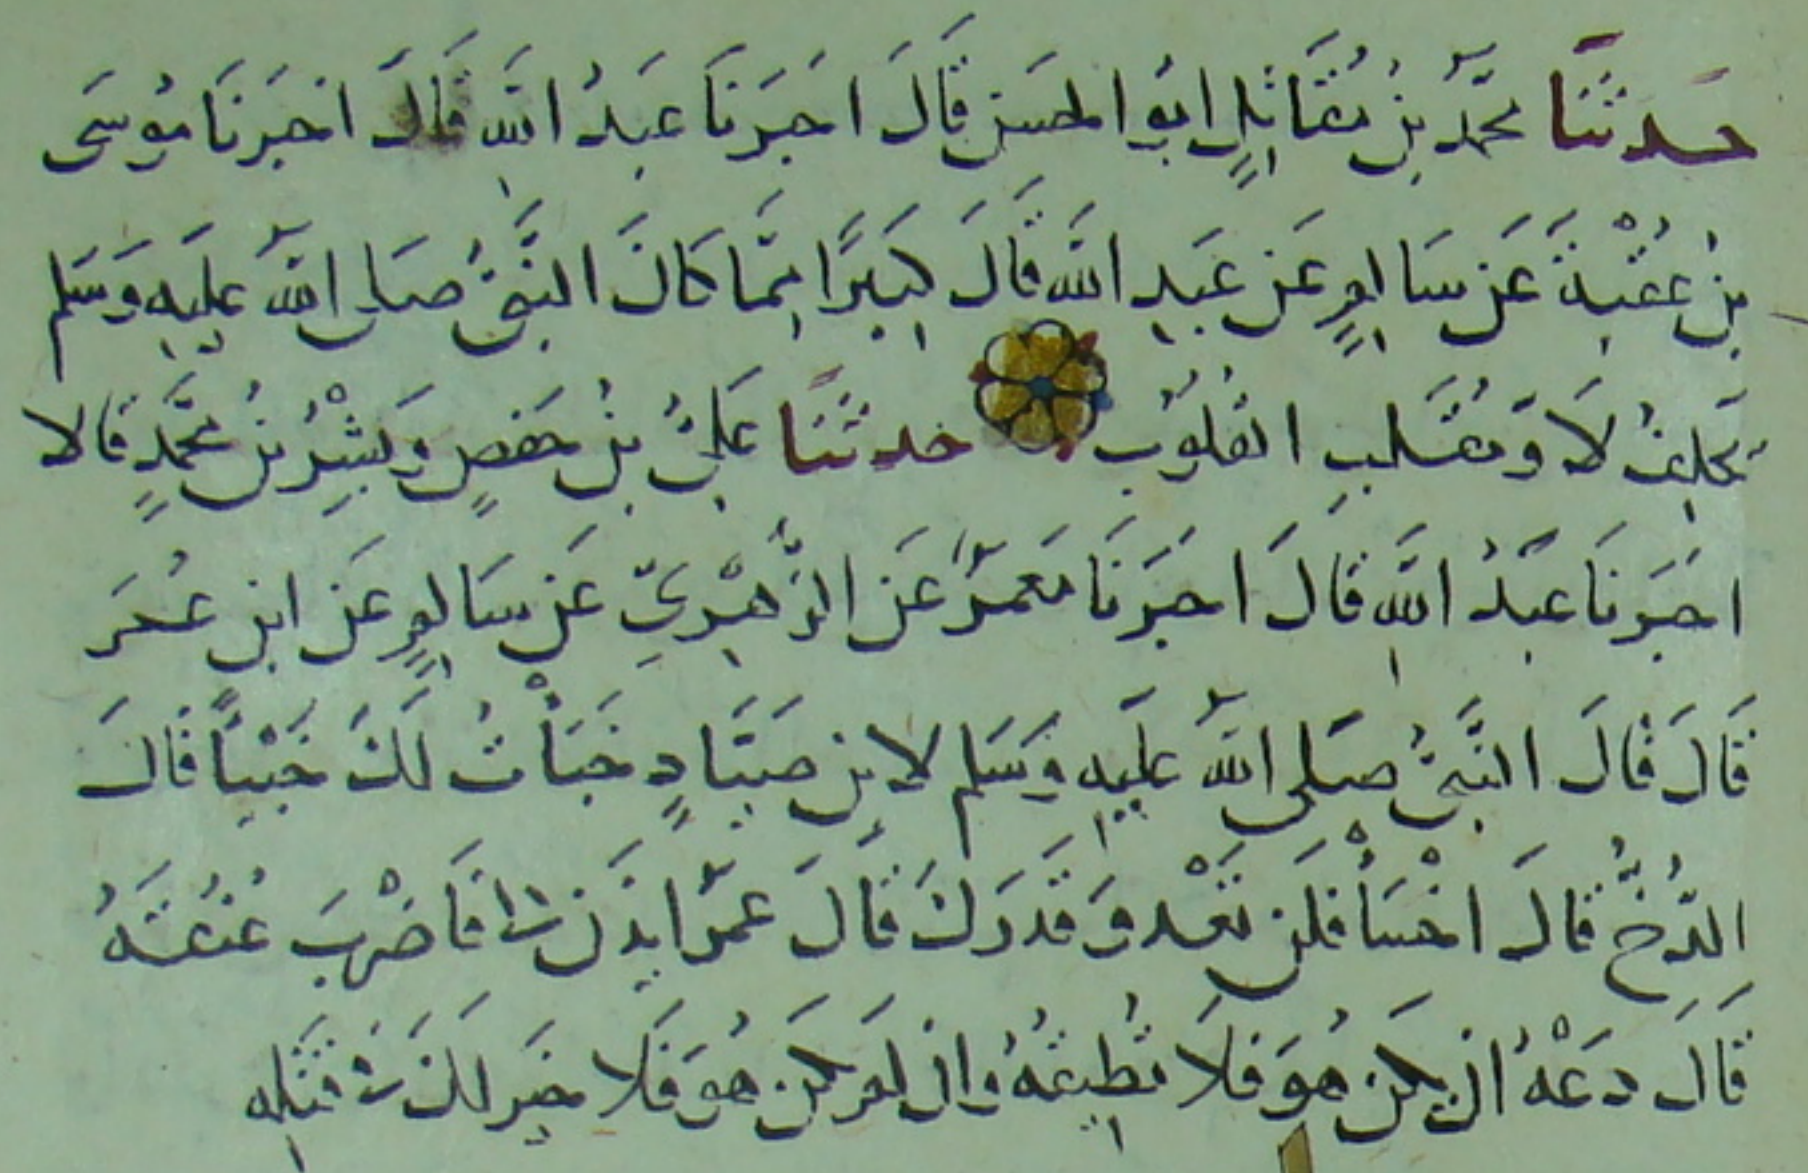 حَدثَنَا محَمَّدُ بنُ مُقَاتِلٍ ابوُ الحسَنِ قَالَ اخبَرَنَا عَبدُ اللَّهِ قَالَ اخبَرَنَا موُسَى
بنُ عُقْبةَ عَن سَالمٍ عَن عَبدِ اللَّه قَالَ كَثيرًا مِمَّا كَانَ النَّبىُّ صَلى اللَّهُ عليَهِ وَسَلم
يَحلِفُ لَا وَمُقَلبِ القُلوُبِ حدثَنَا عَلىُّ بنُ حَفصٍ وَبشِْرُ بنُ محَمَّدٍ قالا
اخبَرَنَا عَبدُ اللَّهِ قالَ اخبَرَنَا مَعمَرٌ عَن الزُّهْرِيِّ عَن سَالمٍ عَن ابنِ عُمَرَ
قَالَ قَالَ النَّبىُّ صَلى اللَّهُ عَليَهِ وَسَلم لابنِ صَيَّادٍ خَبَأْتُ لَكَ خَبْيًا قَالَ
الدُّخُّ قالَ اخْسَأْ فَلَن تَعْدوَ قَدرَكَ قَالَ عمَرُ ايذَن لى فَاضْربَ عُنُقَهُ
قَالَ دَعْهُ ان يَكن هُوَ فَلَا تُطِيقُهُ وَان لم يَكن هُوَ فَلا خَيرَ لَكَ فى قَتلِه